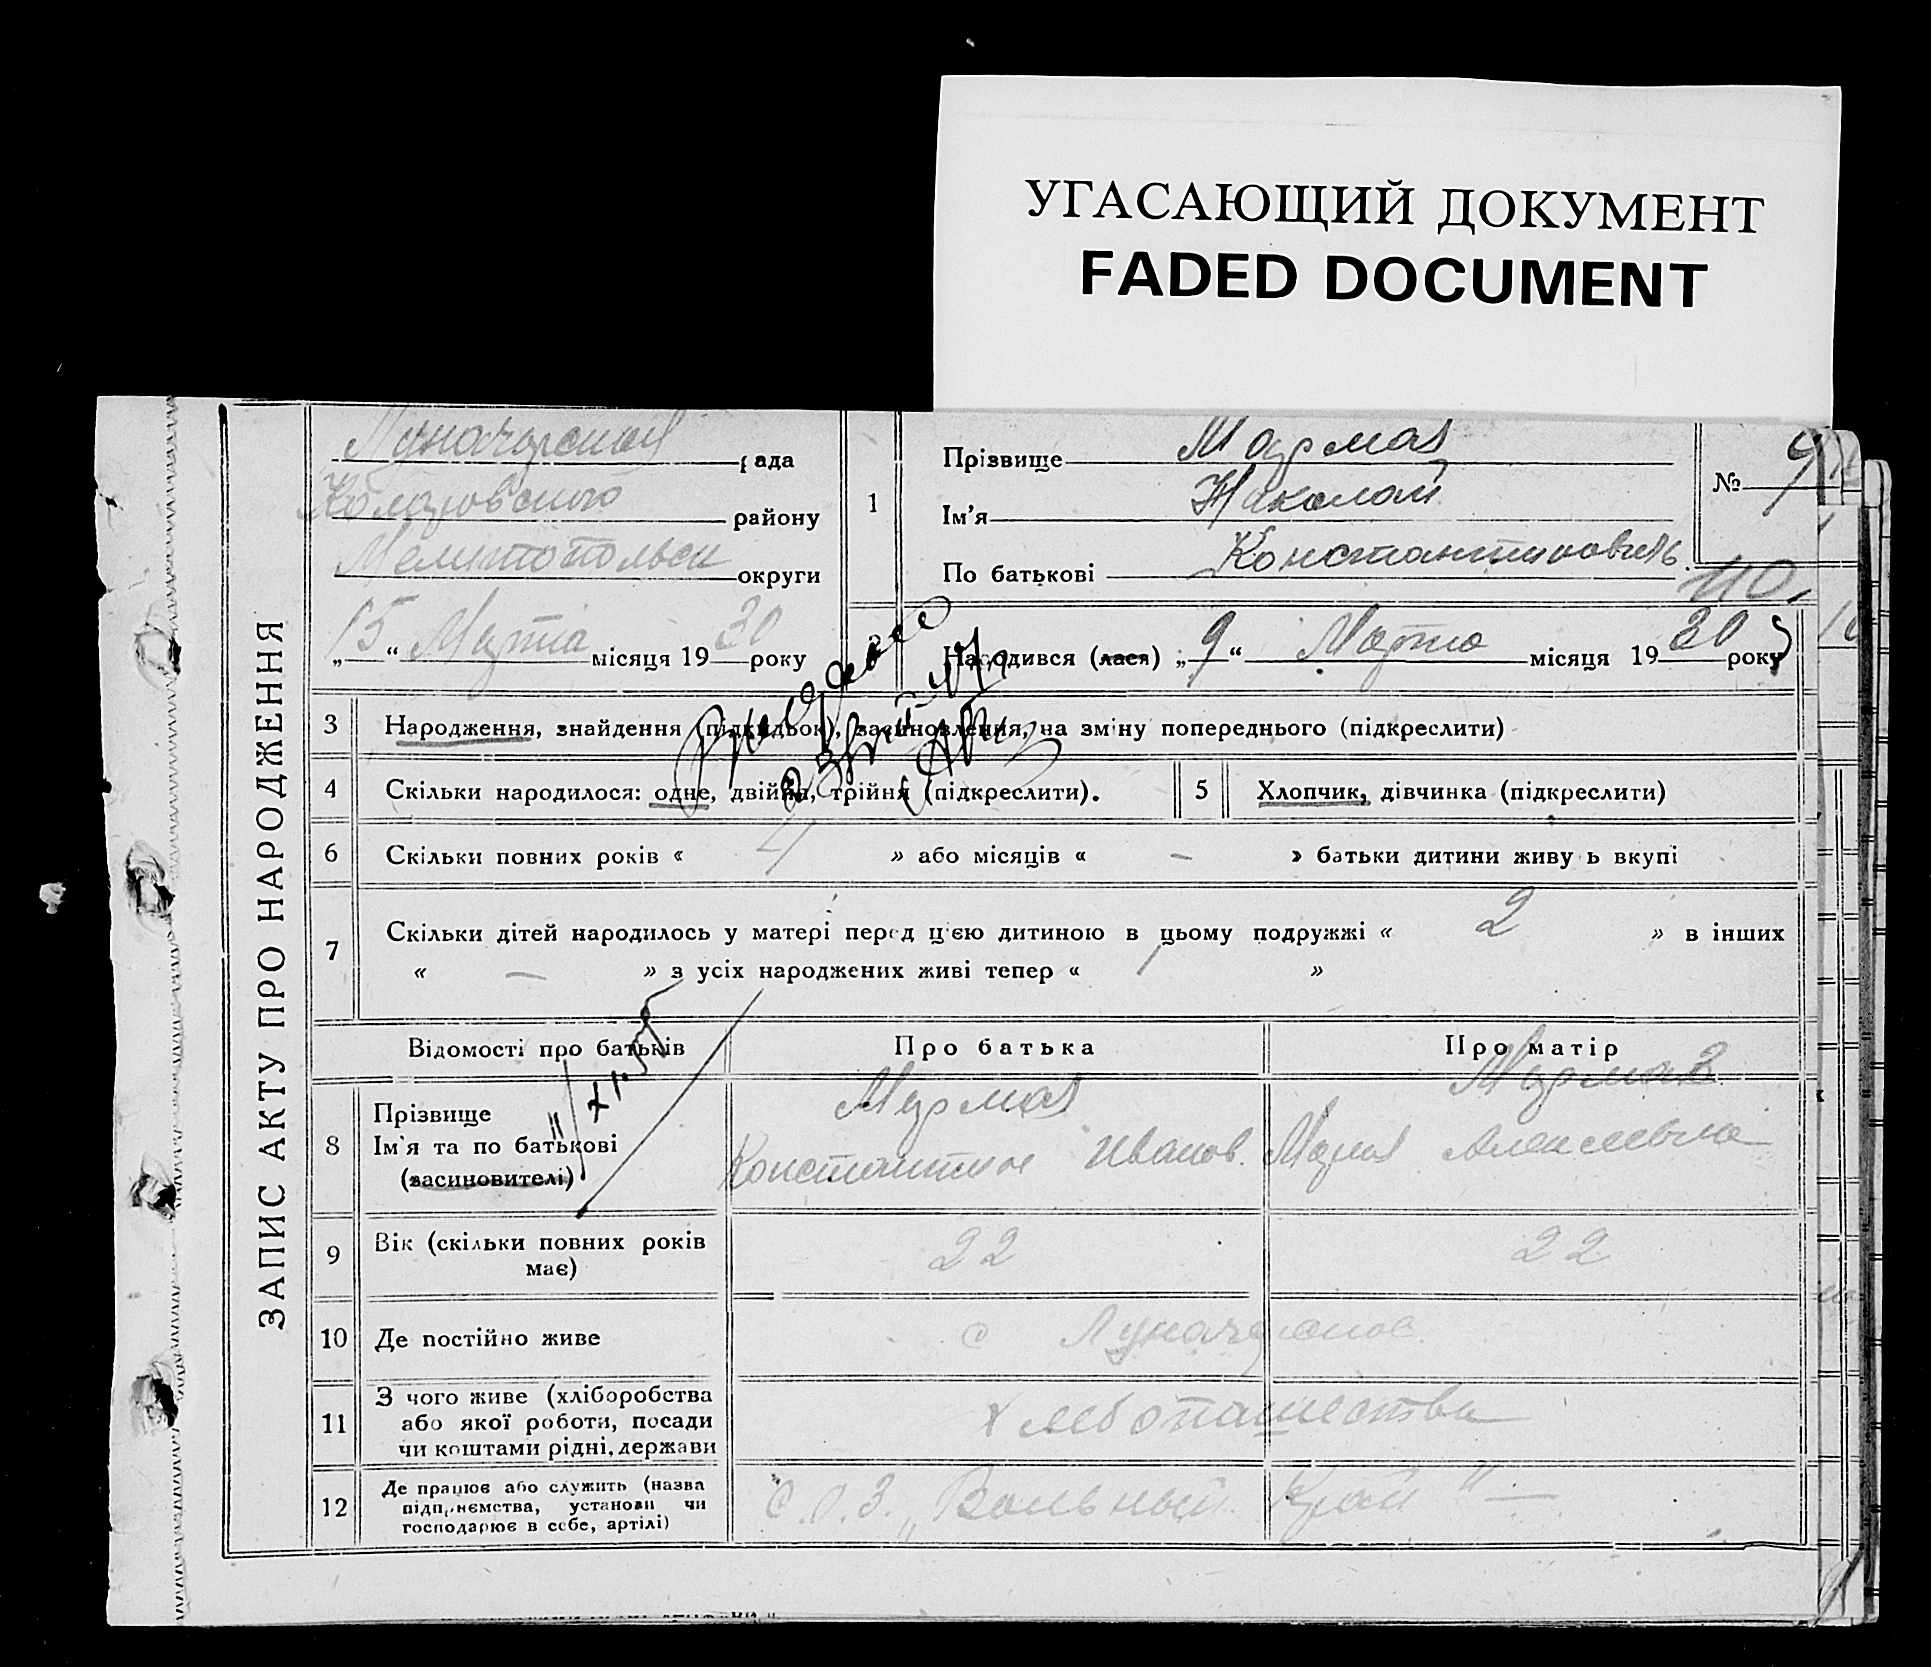 УГАСАЮЩИЙ ДОКУМЕНТ
FADED DOCUMENT
ЗАПИС АКТУ ПРО НАРОДЖЕННЯ
Луначарская рада
района
району
Мелитопольск округи
„15“ Марта місяця 1930 року
1
Прізвище Мармая
Ім'я Николай
По батькові Константинович.
№ 9
110.
2 Народився (лася) „9“ Марта місяця 1930 року
3 Народження, знайдення (підкидьок), засиновлення, на зміну попереднього (підкреслити)
4 Скільки народилося: одне, двійня, трійня (підкреслити).
5 Хлопчик, дівчинка (підкреслити)
6 Скільки повних років « 4 » або місяців « – » батьки дитини живу ь вкупі
7 Скільки дітей народилось у матері перед цією дитиною в цьому подружжі « 2 » в інших
« – » з усіх народжених живі тепер « 1 »
Відомості про батьків Про батька Про матір
8 Прізвище
Ім'я та по батькові
(засиновителі)
Мармая
Константин Иванов.
Мармая
Мария Алексеевна
9 Вік (скільки повних років має) 22 22
10 Де постійно живе с Луначарское
11 З чого живе (хліборобства
або якої роботи, посади
чи коштами рідні, держави
хлебопашества
12 Де працює або служить (назва
підприємства, установи чи
господарює в себе, артілі)
С.О.З. „Вольный Край" —